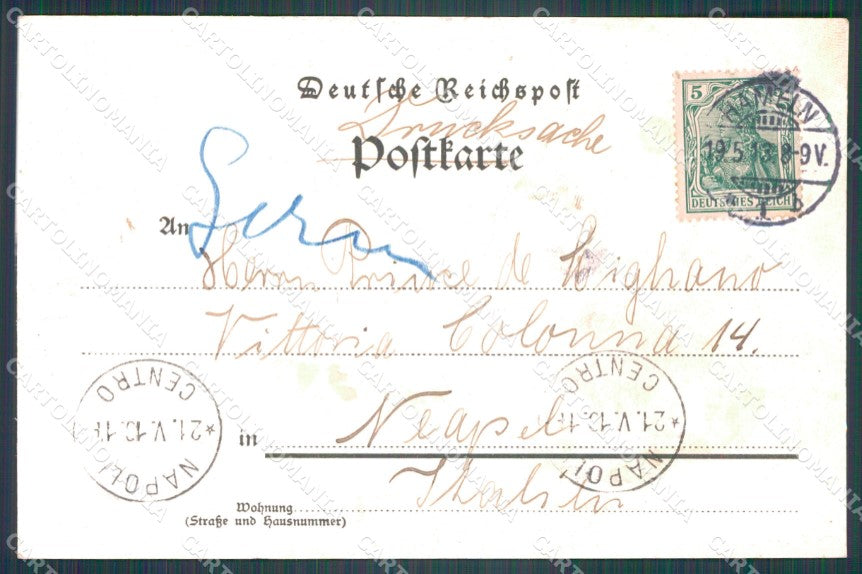 Deutsche Reichspost
Drucksache
Postkarte
5
DEUTSCHES REICH
HAMELN
19.5.13.8-9V.
An
Herrn Prince de
Vittoria Colonna 14.
in Neapel
Italien
NAPOLI
CENTRO
*21.V.13.1
NAPOLI
CENTRO
*21.V.13.1
Wohnung
(Straße und Hausnummer)
CARTOLINOMANIA